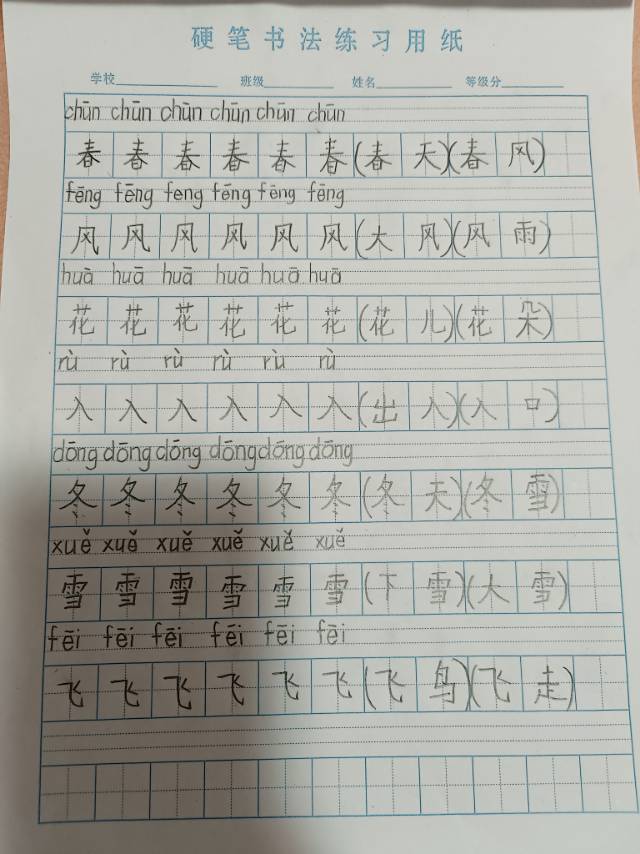 硬笔书法练习用纸
学校 班级 姓名 等级分
chūn chūn chūn chūn chūn chūn
春 春 春 春 春 春 (春 天)(春 风)
fēng fēng feng fēng fēng fēng
风 风 风 风 风 风 (大 风)(风 雨)
huā huā huā huā huā huā
花 花 花 花 花 花 (花 儿)(花 朵)
rù rù rù rù rù rù
入 入 入 入 入 入 (出 入)(入 口)
dōng dōng dōng dōng dōng dōng
冬 冬 冬 冬 冬 冬 (冬 天)(冬 雪)
xuě xuě xuě xuě xuě xuě
雪 雪 雪 雪 雪 雪 (下 雪)(大 雪)
fēi fēi fēi fēi fēi fēi
飞 飞 飞 飞 飞 飞 (飞 鸟)(飞 走)